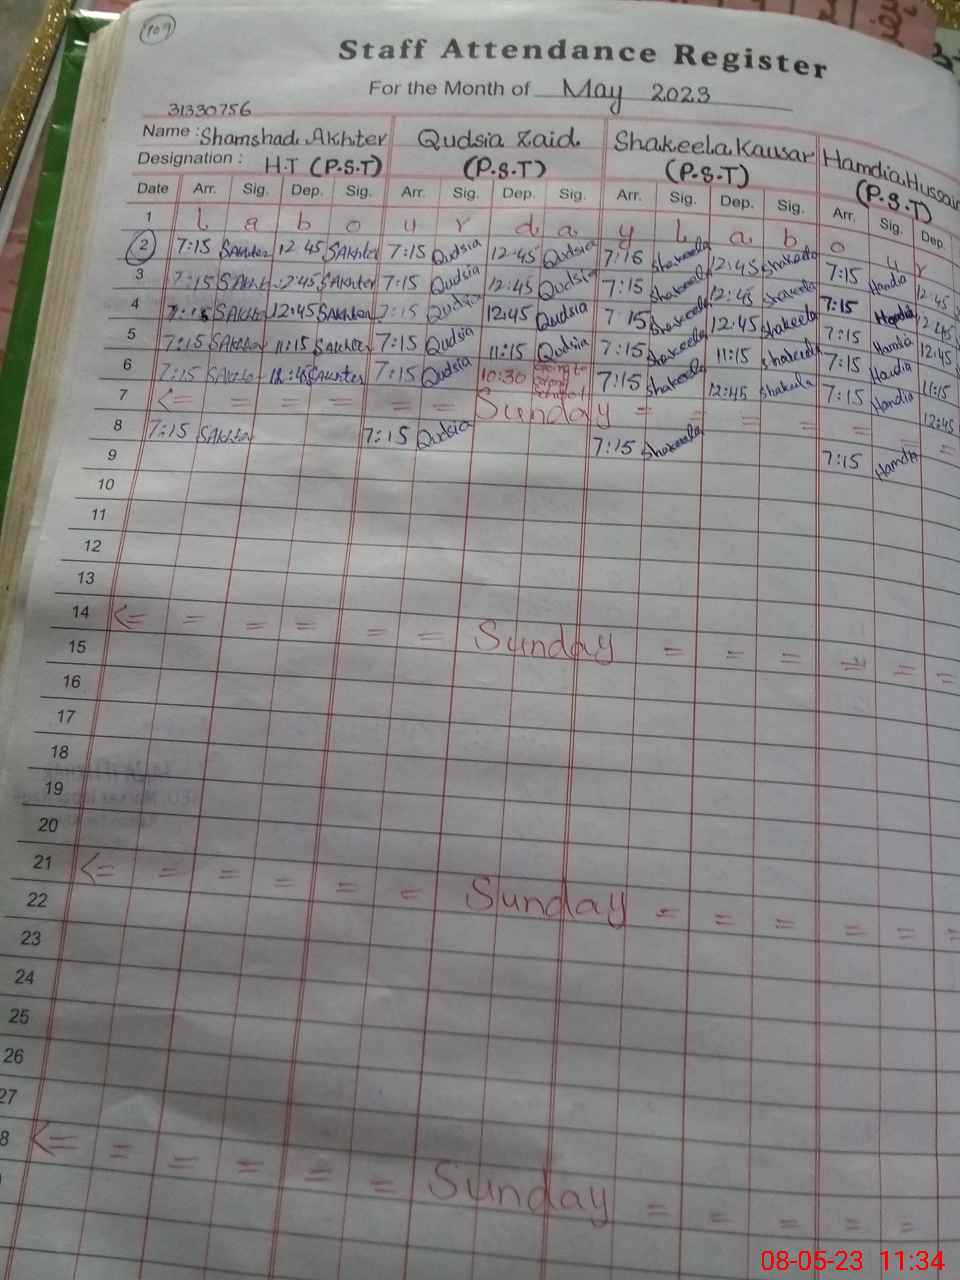 109
Staff Attendance Register
For the Month of May 2023
31330756
Name : Shamshad Akhter Qudsia Zaid Shakeela Kausar Hamdia Hussain
Designation : H.T (P.S.T) (P.S.T) (P.S.T) (P.S.T)
Date Arr. Sig. Dep. Sig. Arr. Sig. Dep. Sig. Arr. Sig. Dep. Sig. Arr. Sig. Dep.
1 l a b o u r d a y l a b o u r
2 7:15 SAkhter 12:45 SAkhter 7:15 Qudsia 12:45 Qudsia 7:16 Shakeela 12:45 Shakeela 7:15 Hamdia 12:45
3 7:15 SAkhter 12:45 SAkhter 7:15 Qudsia 12:45 Qudsia 7:15 Shakeela 12:45 Shakeela 7:15 Hamdia 12:45
4 7:15 SAkhter 12:45 SAkhter 7:15 Qudsia 12:45 Qudsia 7:15 Shakeela 12:45 Shakeela 7:15 Hamdia 12:45
5 7:15 SAkhter 11:15 SAkhter 7:15 Qudsia 11:15 Qudsia 7:15 Shakeela 11:15 Shakeela 7:15 Hamdia 11:15
6 7:15 SAkhter 12:45 SAkhter 7:15 Qudsia 10:30 Going to School 7:15 Shakeela 12:45 Shakeela 7:15 Hamdia 12:45
7 <= = = = = = Sunday = = = = = =
8 7:15 SAkhter 7:15 Qudsia 7:15 Shakeela 7:15 Hamdia
9
10
11
12
13
14 <= = = = = = Sunday = = = = = =
15
16
17
18
19
20
21 <= = = = = = Sunday = = = = = =
22
23
24
25
26
27
8 <= = = = = = Sunday = = = = =
08-05-23 11:34